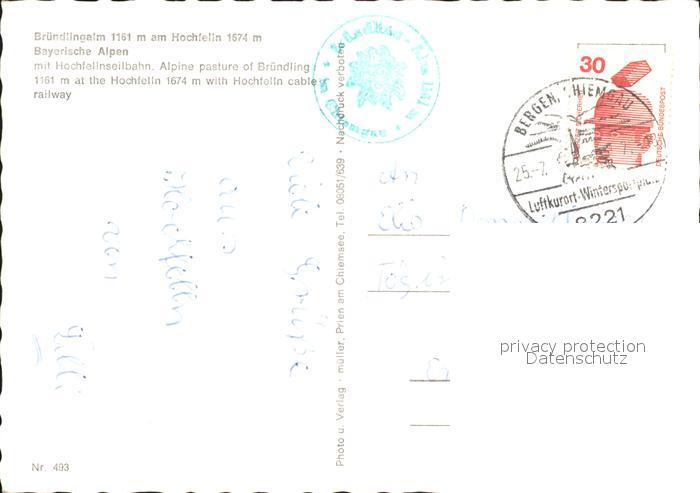 Bründlingalm 1161 m am Hochfelln 1674 m
Bayerische Alpen
mit Hochfellnseilbahn. Alpine pasture of Bründling
1161 m at the Hochfelln 1674 m with Hochfelln cable
railway
Viele Grüße
aus
Hochfelln
von
Nr. 493
Photo u. Verlag · müller, Prien am Chiemsee, Tel. 08051/639 · Nachdruck verboten
30
DEUTSCHE BUNDESPOST
BERGEN, CHIEMGAU
25.-7.
Luftkurort-Wintersportplatz
8221
An
privacy protection
Datenschutz